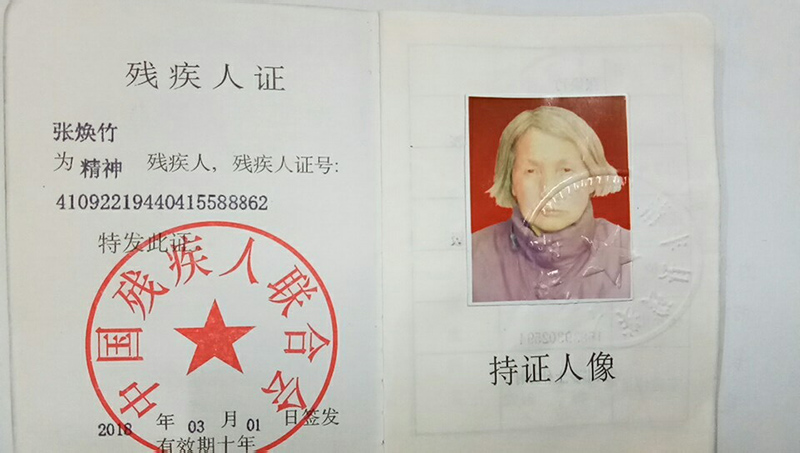 残疾人证
张焕竹
为 精神 残疾人，残疾人证号：
41092219440415588862
特发此证
中国残疾人联合会
2018 年 03 月 01 日签发
有效期十年
持证人像